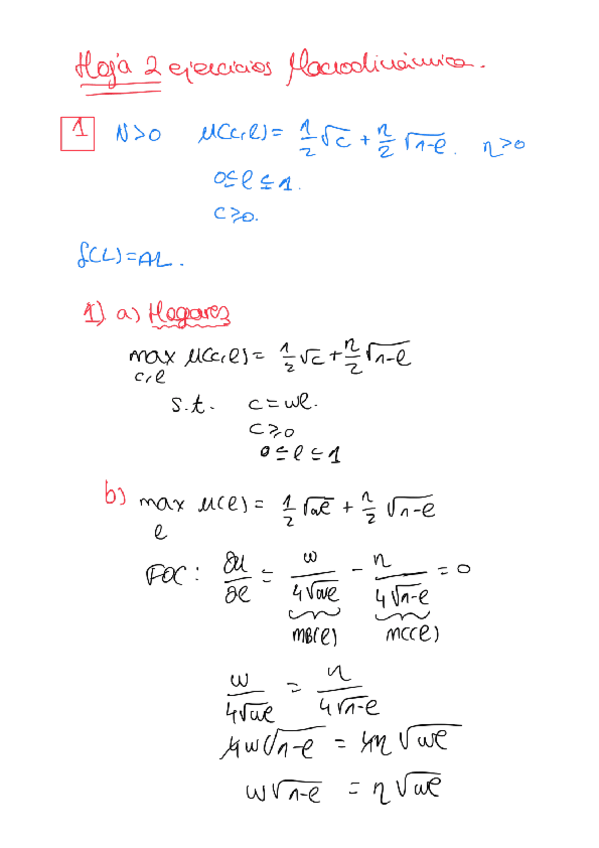 Hoja 2 ejercicios Macrodinámica.
1 N>0 u(c,l) = 1/2 √c + η/2 √1-l. η>0
0≤l≤1.
c≥0.
f(L)=AL.
1) a) Hogares
max u(c,l) = 1/2 √c + η/2 √1-l
c,l
s.t. c=wl.
c≥0
0≤l≤1
b) max u(l) = 1/2 √wl + η/2 √1-l
l
FOC: ∂u/∂l = w/4√wl - η/4√1-l = 0
MB(l) MC(l)
w/4√wl = η/4√1-l
4w√1-l = 4η√wl
w√1-l = η√wl